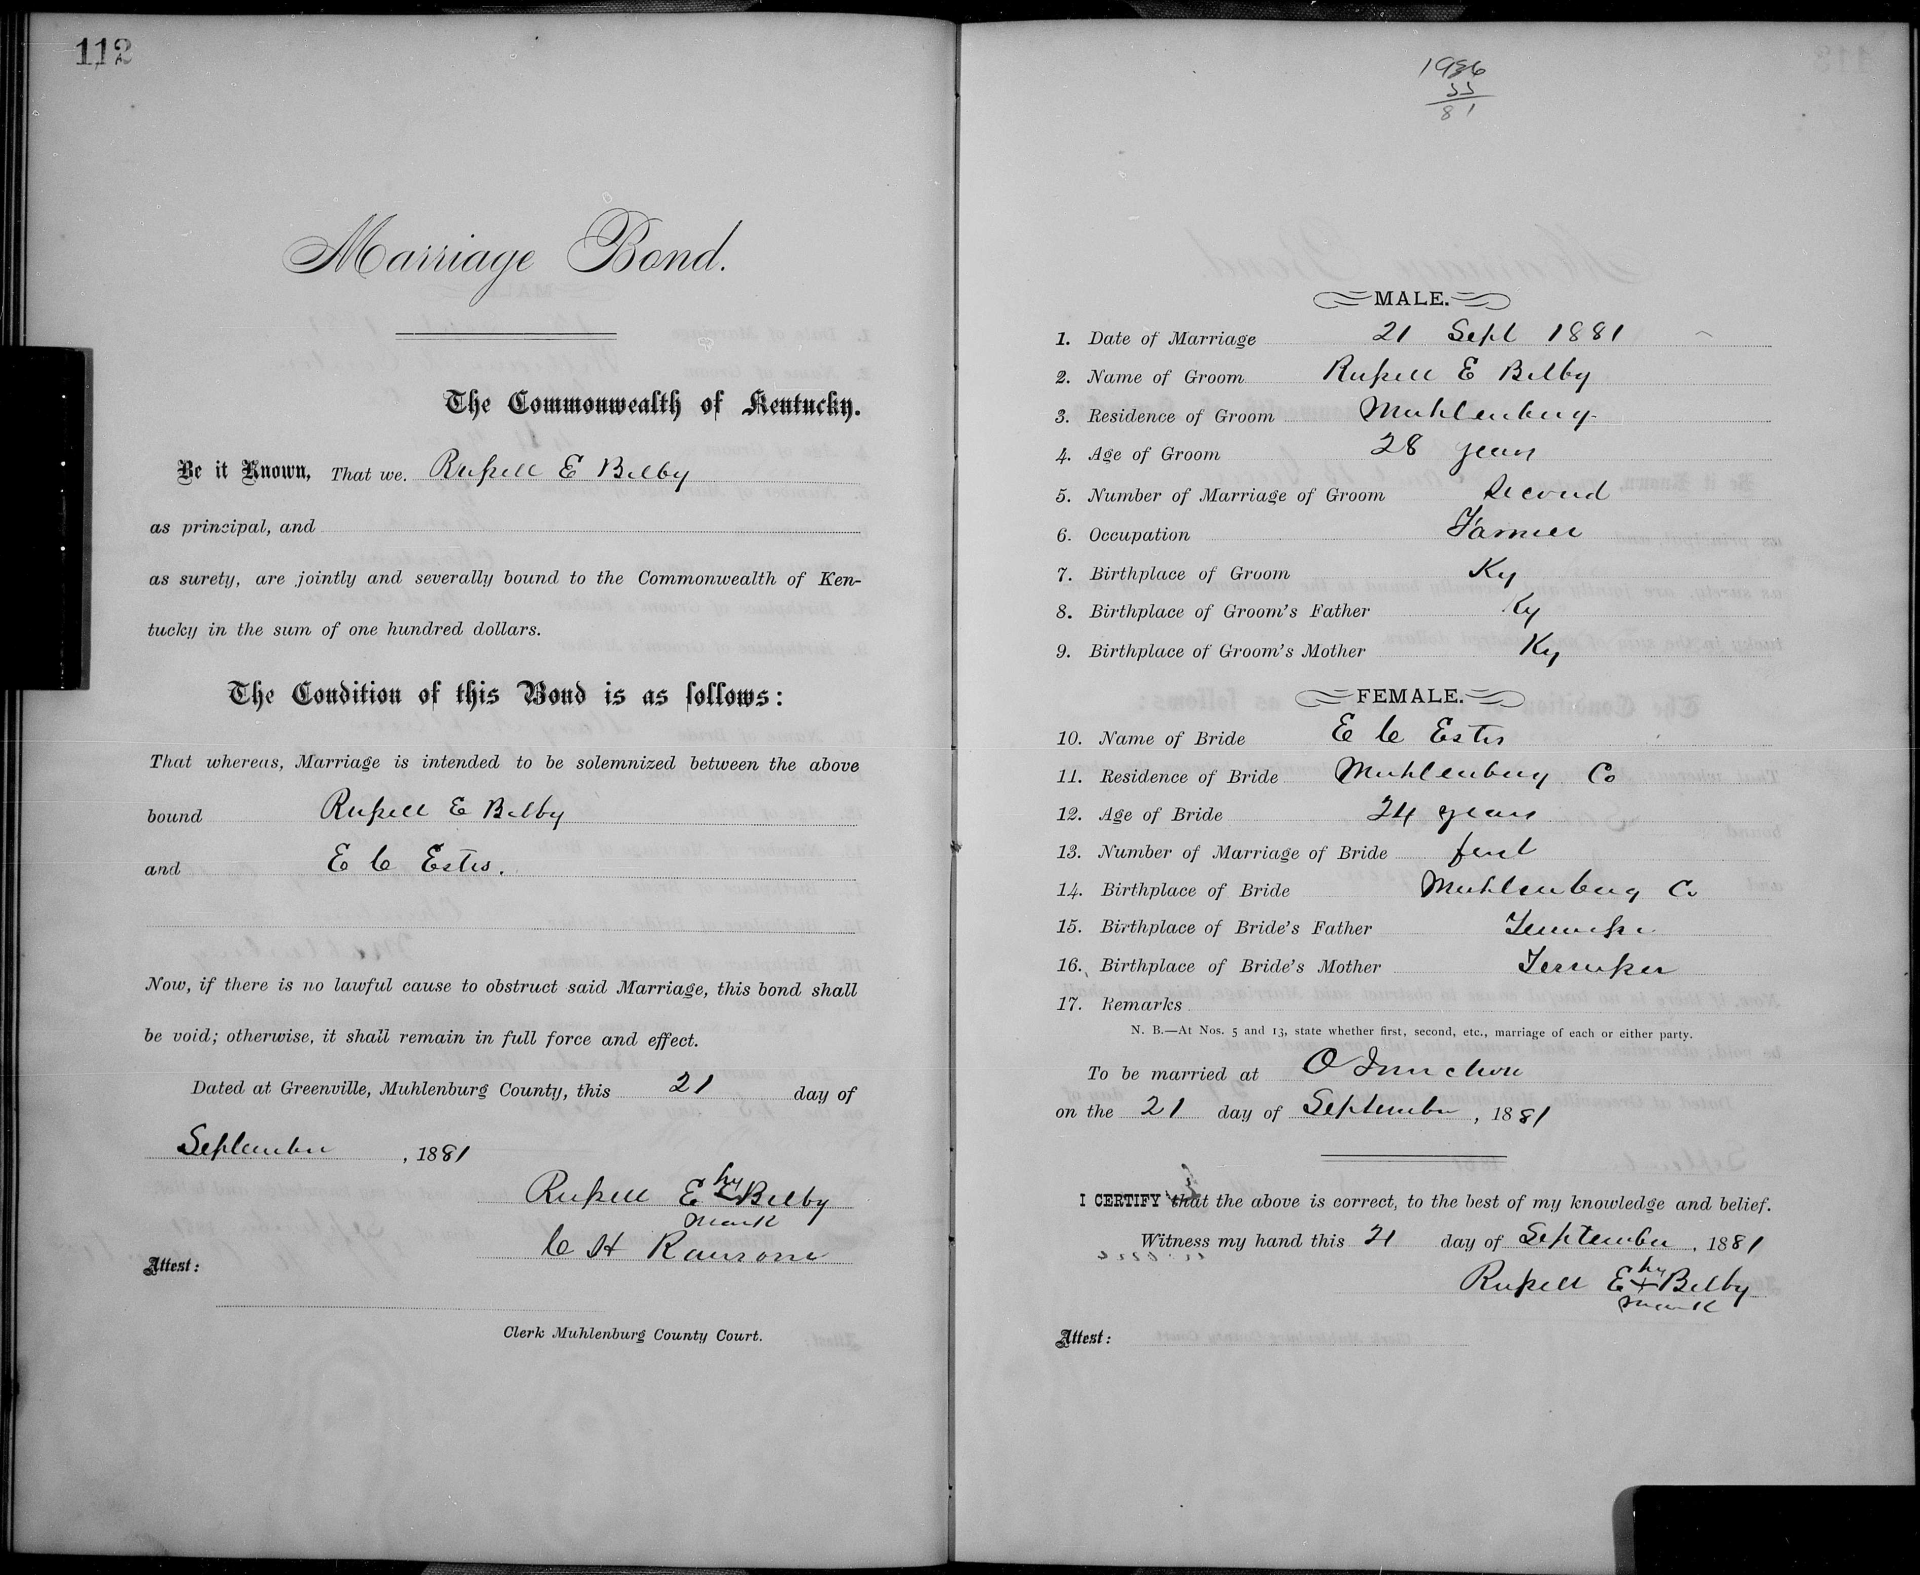 112
Marriage Bond.
The Commonwealth of Kentucky.
Be it Known, That we. Russell E Bilby
as principal, and
as surety, are jointly and severally bound to the Commonwealth of Ken-
tucky in the sum of one hundred dollars.
The Condition of this Bond is as follows:
That whereas, Marriage is intended to be solemnized between the above
bound Russell E Bilby
and E C Estes.
Now, if there is no lawful cause to obstruct said Marriage, this bond shall
be void; otherwise, it shall remain in full force and effect.
Dated at Greenville, Muhlenburg County, this 21 day of
September, 1881
Russell E his X Bilby
mark
C H Ransom
Attest:
Clerk Muhlenburg County Court.
1936
55
81
MALE.
1. Date of Marriage 21 Sept 1881
2. Name of Groom Russell E Bilby
3. Residence of Groom Muhlenburg
4. Age of Groom 28 years
5. Number of Marriage of Groom Second
6. Occupation Farmer
7. Birthplace of Groom Ky
8. Birthplace of Groom's Father Ky
9. Birthplace of Groom's Mother Ky
FEMALE.
10. Name of Bride E C Estes
11. Residence of Bride Muhlenburg Co
12. Age of Bride 24 years
13. Number of Marriage of Bride first
14. Birthplace of Bride Muhlenburg Co
15. Birthplace of Bride's Father Tennessee
16. Birthplace of Bride's Mother Tennessee
17. Remarks
N. B.—At Nos. 5 and 13, state whether first, second, etc., marriage of each or either party.
To be married at
on the 21 day of September, 1881
I CERTIFY that the above is correct, to the best of my knowledge and belief.
Witness my hand this 21 day of September, 1881
Russell E his X Bilby
mark
Attest: